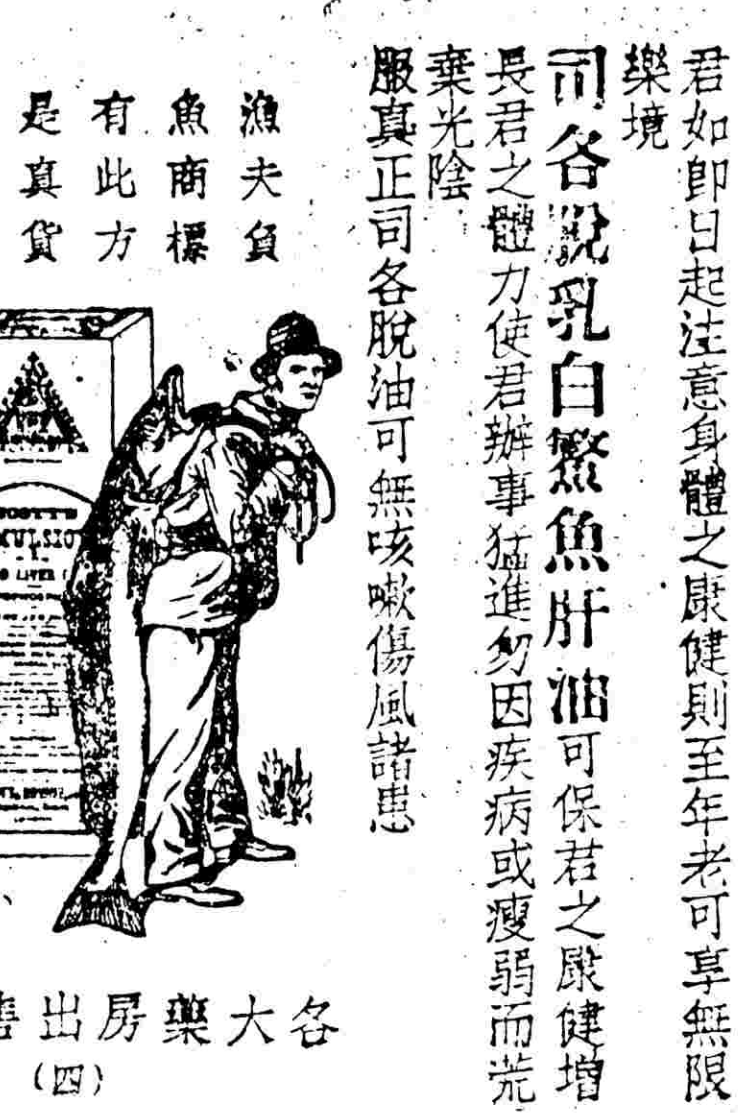 君如卽日起注意身體之康健則至年老可享無限
樂境
司各脫乳白鰵魚肝油可保君之康健增
長君之體力使君辦事猛進勿因疾病或瘦弱而荒
棄光陰
服真正司各脫油可無咳嗽傷風諸患
漁夫負
魚商標
有此方
是真貨
SCOTT'S
LIVER
各大藥房出售
(四)